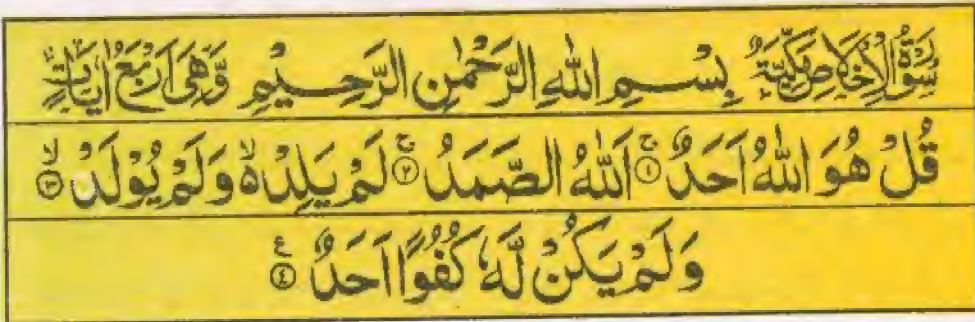 سُوْرَةُ الْاِخْلَاصِ مَكِّيَّةٌ بِسْمِ اللهِ الرَّحْمٰنِ الرَّحِيْمِ وَّهِىَ اَرْبَعُ اٰيَاتٍ
قُلْ هُوَ اللهُ اَحَدٌ ۚ﴿١﴾ اَللهُ الصَّمَدُ ۚ﴿٢﴾ لَمْ يَلِدْ ۙ٥ وَلَمْ يُوْلَدْ ۙ﴿٣﴾
وَلَمْ يَكُنْ لَّهٗ كُفُوًا اَحَدٌ ﴿٤﴾ ع